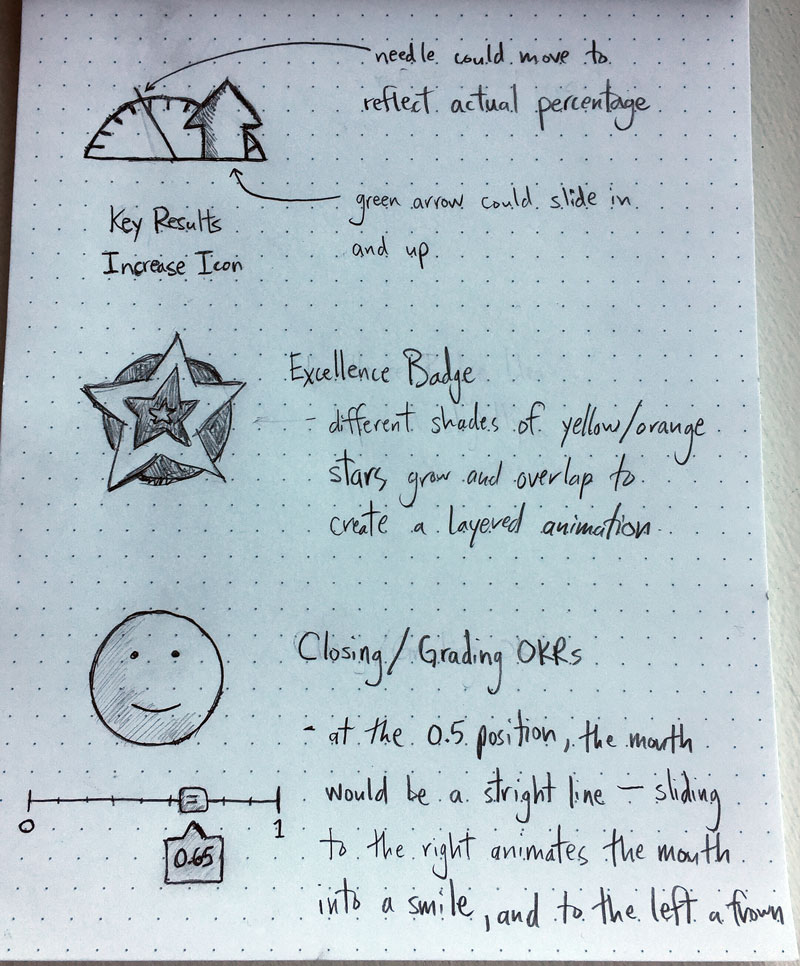 needle could move to
reflect actual percentage
green arrow could slide in
and up
Key Results
Increase Icon
Excellence Badge
- different shades of yellow/orange
stars grow and overlap to
create a layered animation
Closing/Grading OKRs
- at the 0.5 position, the mouth
would be a stright line — sliding
to the right animates the mouth
into a smile, and to the left a frown
0 1
0.65